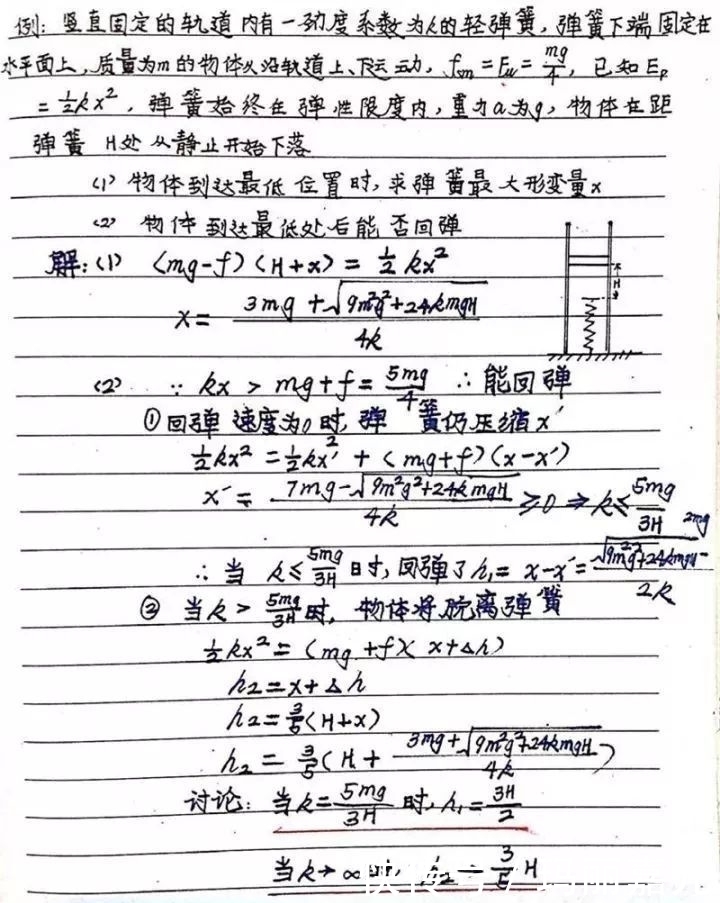 例: 竖直固定的轨道内有一劲度系数为k的轻弹簧, 弹簧下端固定在
水平面上, 质量为m的物体从沿轨道上、下运动, fm = F = mg/4, 已知Ep
= ½kx², 弹簧始终在弹性限度内, 重力a为g, 物体在距
弹簧 H处从静止开始下落
(1) 物体到达最低位置时, 求弹簧最大形变量x
(2) 物体到达最低处后能否回弹
解: (1) (mg-f)(H+x) = ½kx²
x = (3mg + √(9m²g²+24kmgH))/4k
H
(2) ∵ kx > mg+f = 5mg/4 ∴ 能回弹
① 回弹速度为0时, 弹簧仍压缩x′
½kx² = ½kx′² + (mg+f)(x-x′)
x′ = (7mg-√(9m²g²+24kmgH))/4k ≥0 ⇒ k≤5mg/3H
∴ 当 k≤5mg/3H时, 回弹了h₁= x-x′= (√(9m²g²+24kmgH)-2mg)/2k
② 当k > 5mg/3H时, 物体将脱离弹簧
½kx² = (mg+f)(x+Δh)
h₂=x+Δh
h₂=3/5(H+x)
h₂ = 3/5(H + (3mg+√(9m²g²+24kmgH))/4k)
讨论: 当k=5mg/3H时, h₁=3H/2
当k→∞ h₂ = 3/5 H